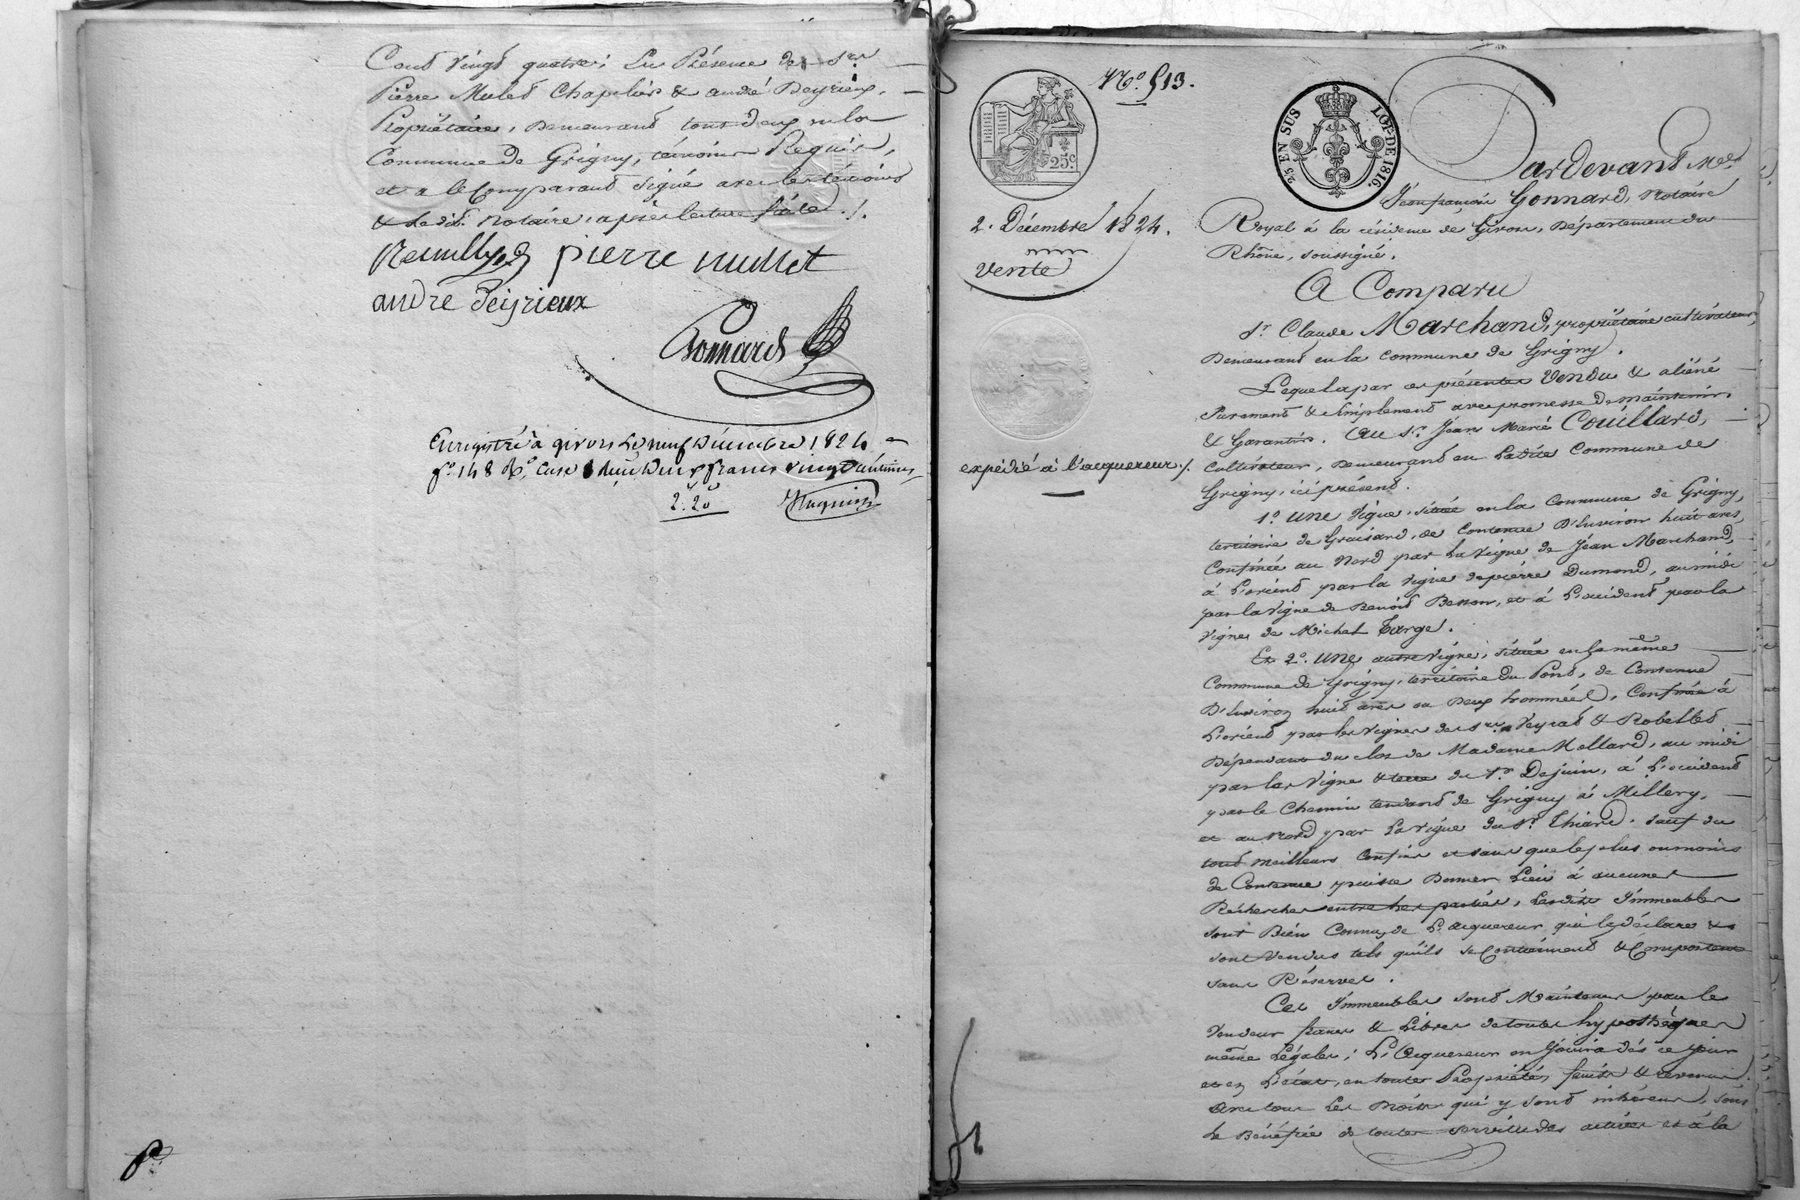 Cent vingt quatre; En Présence des Srs
Pierre Mulet Chapelier & andré Deyrieux,
Propriétaire, Demeurant tous deux en la
Commune de Grigny, témoins Requis,
et a le Comparant signé avec les témoins
& le dit Notaire, après lecture faite ./.
pierre mullet
andre deyrieux
Gonnard
Enregistré à givors Le neuf Décembre 1824
fo. 148 Ro. Case Reçu Deux francs vingt Centimes
2. 20
No. 513.
25 EN SUS
LOI DE 1816.
25c.
2. Décembre 1824.
vente
expédié à l'acquereur ./.
Pardevant Me
Jean françois Gonnard, Notaire
Royal à la résidence de Givors, Département du
Rhône, soussigné.
A Comparu
Sr. Claude Marchand, propriétaire cultivateur,
Demeurant en la commune de Grigny.
Lequel a par ces présentes Vendu & aliéné
Purement & simplement avec promesse de maintenir
& Garantir. Au Sr. Jean Marie Couillard,
Cultivateur, Demeurant en Ladite Commune de
Grigny, ici présent.
1o. une Vigne, située en la Commune de Grigny,
territoire de Graisard, de Contenue D'Environ huit ares,
Confinée au Nord par La Vigne de Jean Marchand,
à L'orient par la Vigne de pierre Dumond, au midi
par la Vigne de Benoit Besson, et à L'occident par la
Vigne de Michel Targe.
Et 2o. une autre Vigne, située en la même
Commune de Grigny, territoire du Pont, de Contenue
D'Environ huit ares ou Deux hommées, Confinée à
L'orient par les Vignes de Srs. Veyrat & Robellet
Dépendant du clos de Madame Mollard, au midi
par les Vigne & terre de Sr. Dejuin, à L'occident
par le Chemin tendant de Grigny à Millery,
et au Nord par La Vigne du Sr. Thiard. Sauf du
tout meilleurs Confins et sans que le plus ou moins
de Contenue puisse Donner Lieu à aucunes
Recherches entre les parties, Lesdits Immeubles
sont Bien Connus de L'acquereur qui le déclare &
sont Vendus tels qu'ils se Contiennent & Comportent
sans Réserve.
Ces Immeubles sont Maintenus par le
Vendeur francs & Libres de toutes hypothèques
même Légales; L'Acquereur en Jouira dès ce jour
et en L'état, en toute Propriété, fruits & revenus
Avec tous Les Droits qui y sont inhérents, sous
Le Bénéfice de toutes servitudes actives et à la